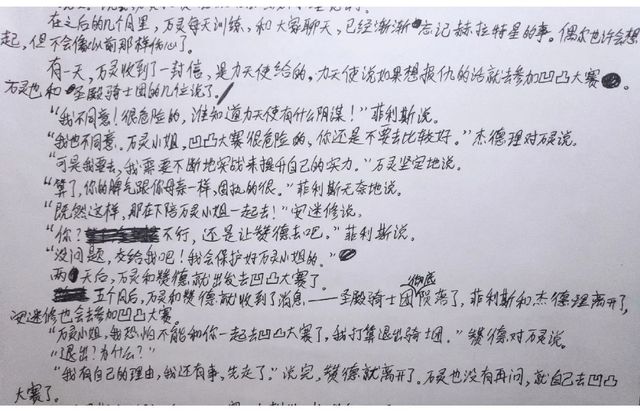 在之后的几个月里,万灵每天训练、和大赛聊天,已经渐渐忘记赫拉特星的事。偶尔也许会想
起,但不会像以前那样伤心了。
有一天,万灵收到了一封信,是力天使给的。力天使说如果想报仇的话就去参加凹凸大赛。
万灵也和圣殿骑士团的几位说了。
“我不同意!很危险的,谁知道力天使有什么阴谋!”菲利斯说。
“我也不同意。万灵小姐,凹凸大赛很危险的,你还是不要去比较好。”杰德理对万灵说。
“可是我要去,我需要不断地实战来提升自己的实力。”万灵坚定地说。
“算了,你的脾气跟你母亲一样,固执的很。”菲利斯无奈地说。
“既然这样,那在下陪万灵小姐一起去!”安迷修说。
“你?不行,还是让赞德去吧。”菲利斯说。
“没问题,交给我吧!我会保护好万灵小姐的。”
两天后,万灵和赞德就出发去凹凸大赛了。
五个月后,万灵和赞德就收到了消息——圣殿骑士团彻底陨落了,菲利斯和杰德理离开了,
安迷修也会去参加凹凸大赛
“万灵小姐,我恐怕不能和你一起去凹凸大赛了,我打算退出骑士团。”赞德对万灵说。
“退出?为什么?”
“我有自己的理由,我还有事,先走了。”说完,赞德就离开了。万灵也没有再问,就自己去凹凸
大赛了。